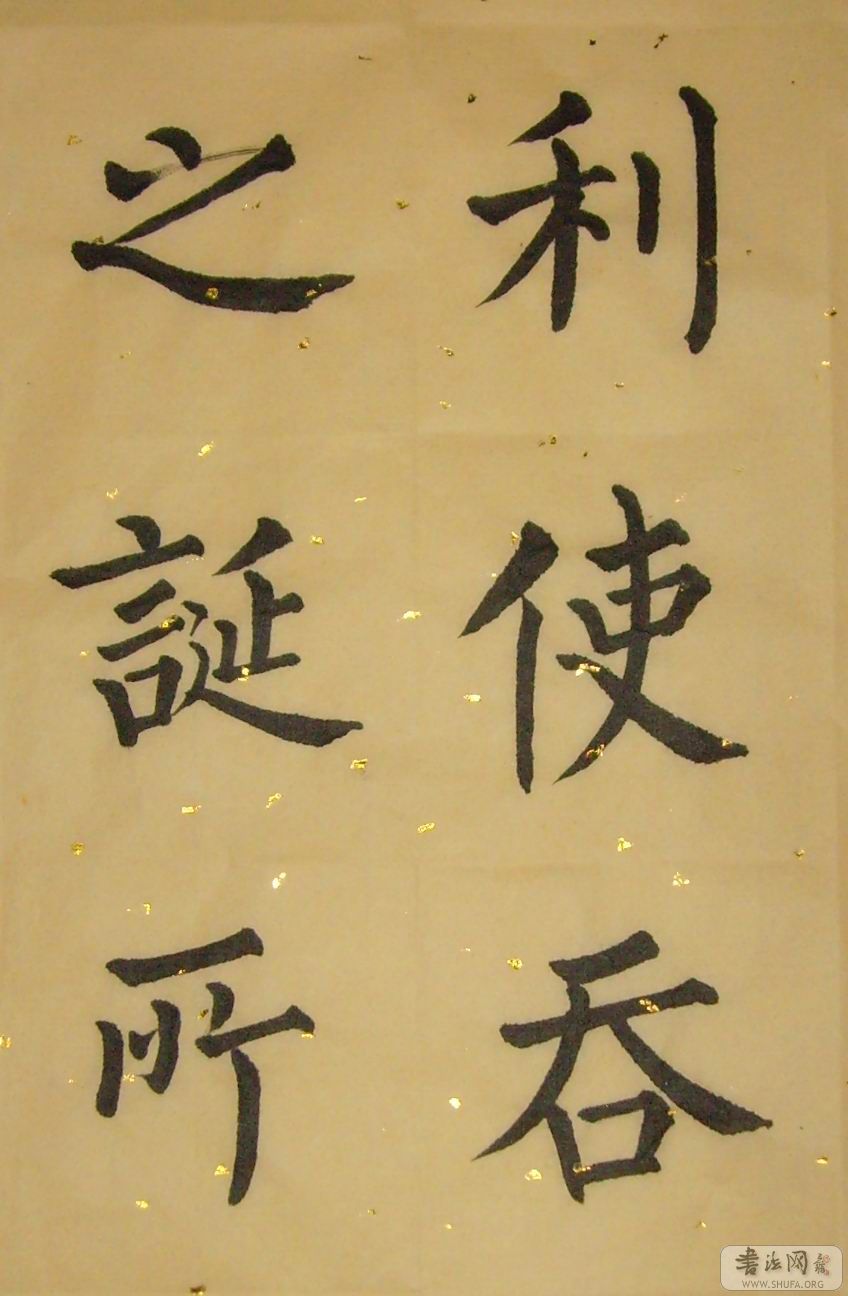 利使吞
之誕所
书法网
WWW.SHUFA.ORG